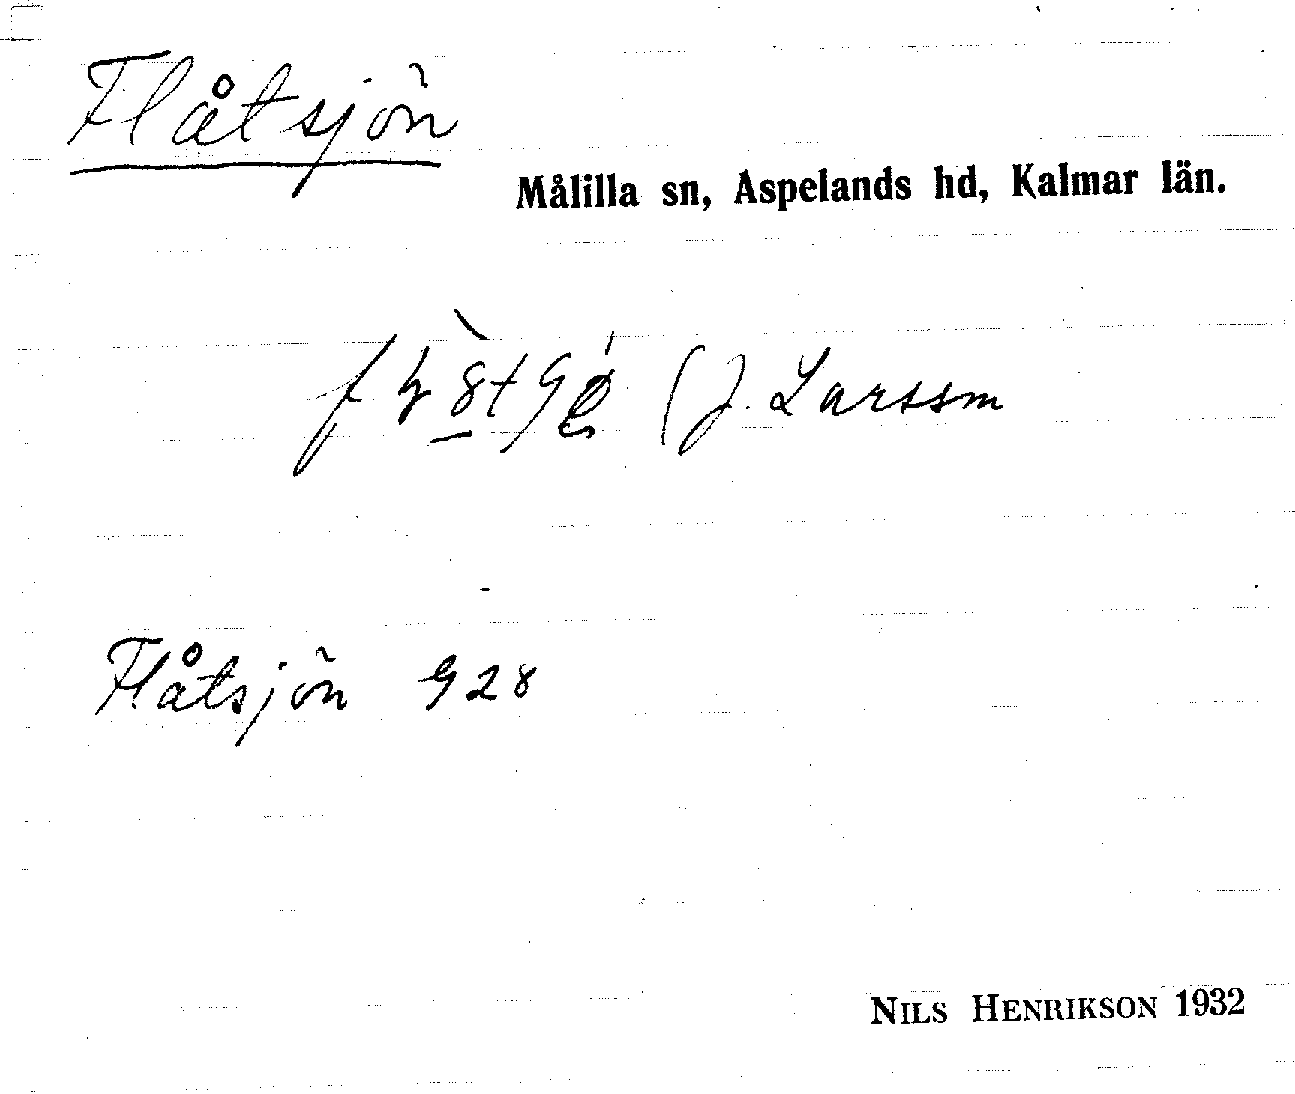 Flåtsjön
Målilla sn, Aspelands hd, Kalmar län.
(J. Larsson
Flåtsjön G28
NILS HENRIKSON 1932